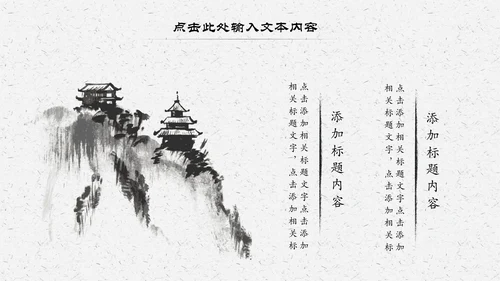 点击此处输入文本内容
添加标题内容
点击添加相关标题文字点击添加
相关标题文字，点击添加相关标
添加标题内容
点击添加相关标题文字点击添加
相关标题文字，点击添加相关标